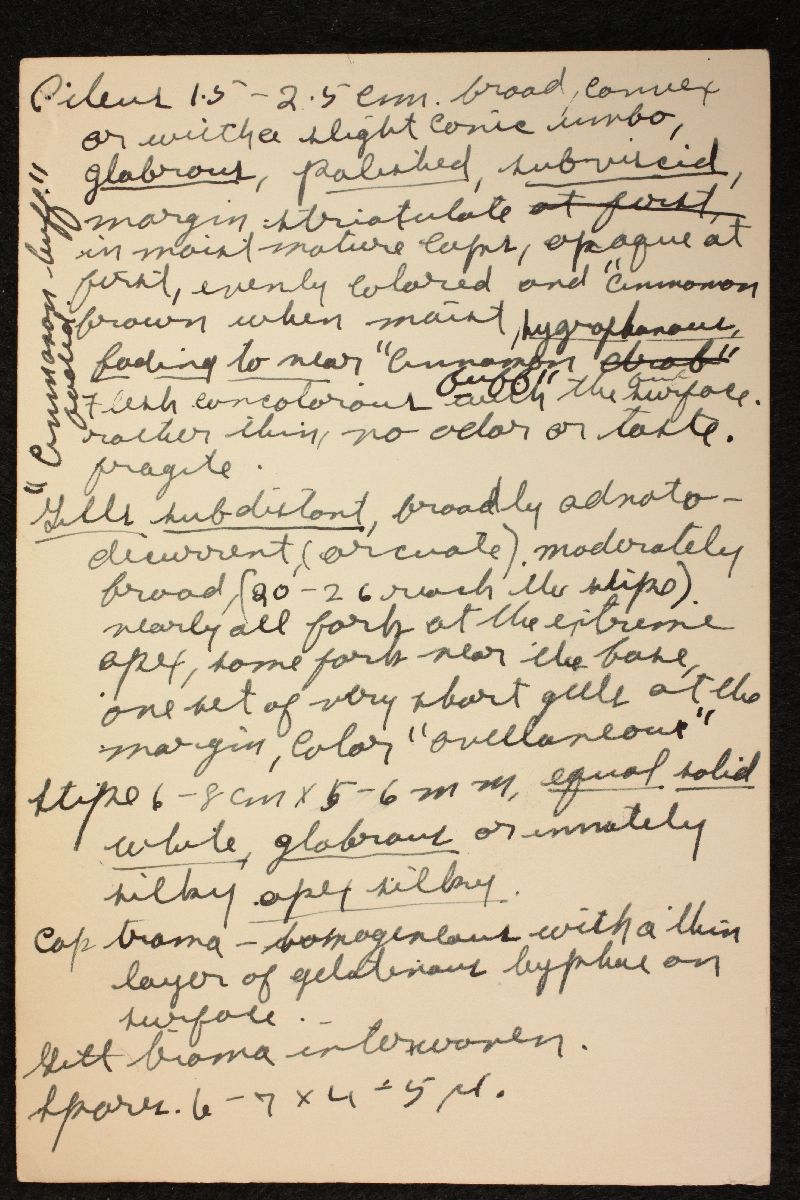 Pileus 1.5 - 2.5 cm. broad, convex
or with a slight conic umbo,
glabrous, polished, subviscid,
margin striatulate at first,
in moist mature caps, opaque at
first, evenly colored and "cinnamon
brown when moist, hygrophanous,
fading to near "cinnamon drab"
buff"
Flesh concolorous with the surface.
rather thin, no odor or taste.
fragile.
"Cinnamon buff"
faded.
Gills subdistant, broadly adnato-
decurrent, (arcuate). moderately
broad, (20 - 26 reach the stipe)
nearly all fork at the extreme
apex, some fork near the base,
one set of very short gills at the
margin, color "avellaneous"
Stipe 6 - 8 cm x 5 - 6 mm, equal solid
white, glabrous or innately
silky apex silky.
Cap trama - homogeneous with a thin
layer of gelatinous hyphae on
surface.
Gill trama interwoven.
Spores. 6 - 7 x 4 - 5 µ.